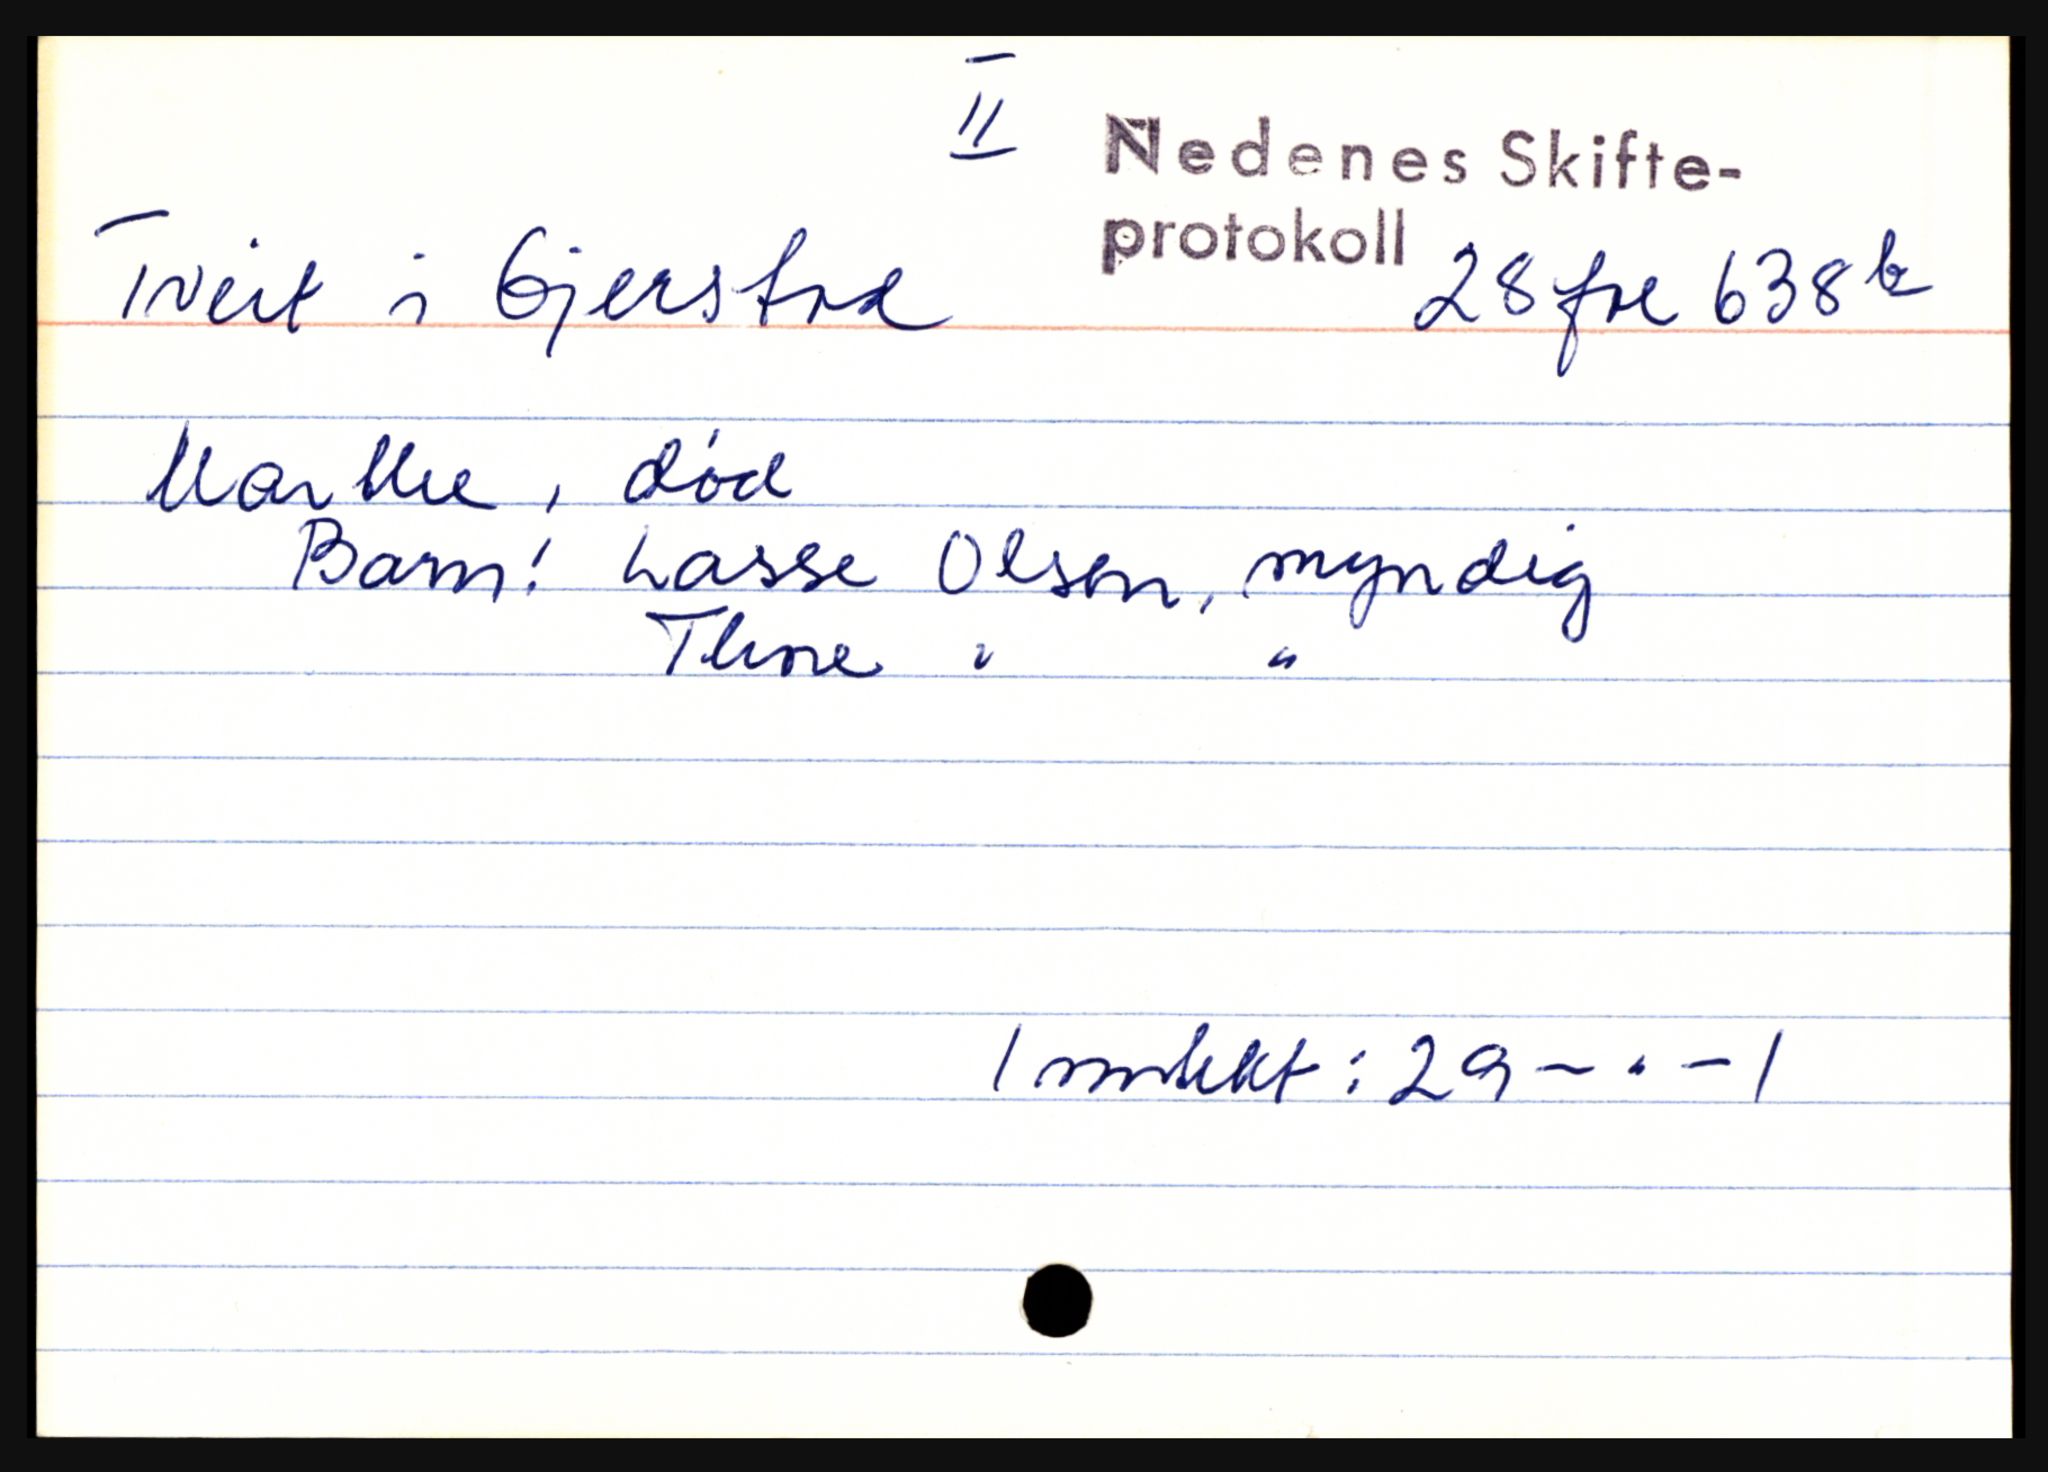 II
Nedenes Skifte-
protokoll
Tveit i Gjerstad 28 fol 638 b
Marthe, død
Barn: Lasse Olsen, myndig
Thore " "
Inntekt: 29 - . - 1